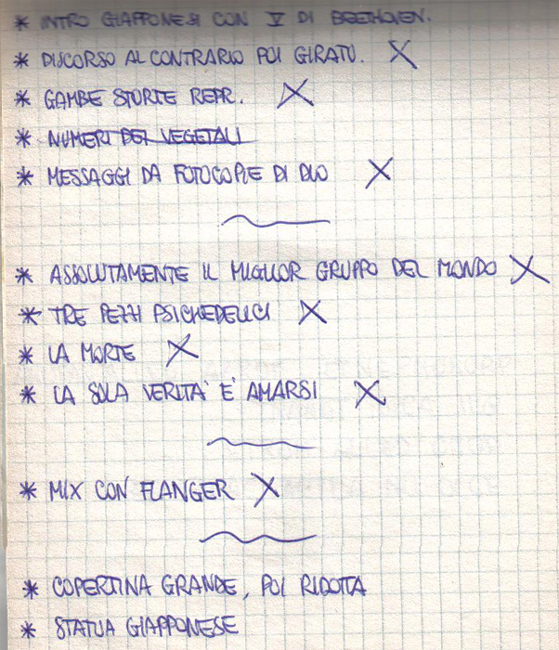 * INTRO GIAPPONESI CON V DI BEETHOVEN.
* DISCORSO AL CONTRARIO POI GIRATO. X
* GAMBE STORTE REPR. X
* NUMERI DEI VEGETALI
* MESSAGGI DA FOTOCOPIE DI DUO X
* ASSOLUTAMENTE IL MIGLIOR GRUPPO DEL MONDO X
* TRE PEZZI PSICHEDELICI X
* LA MORTE X
* LA SOLA VERITA' E' AMARSI X
* MIX CON FLANGER X
* COPERTINA GRANDE, POI RIDOTTA
* STATUA GIAPPONESE